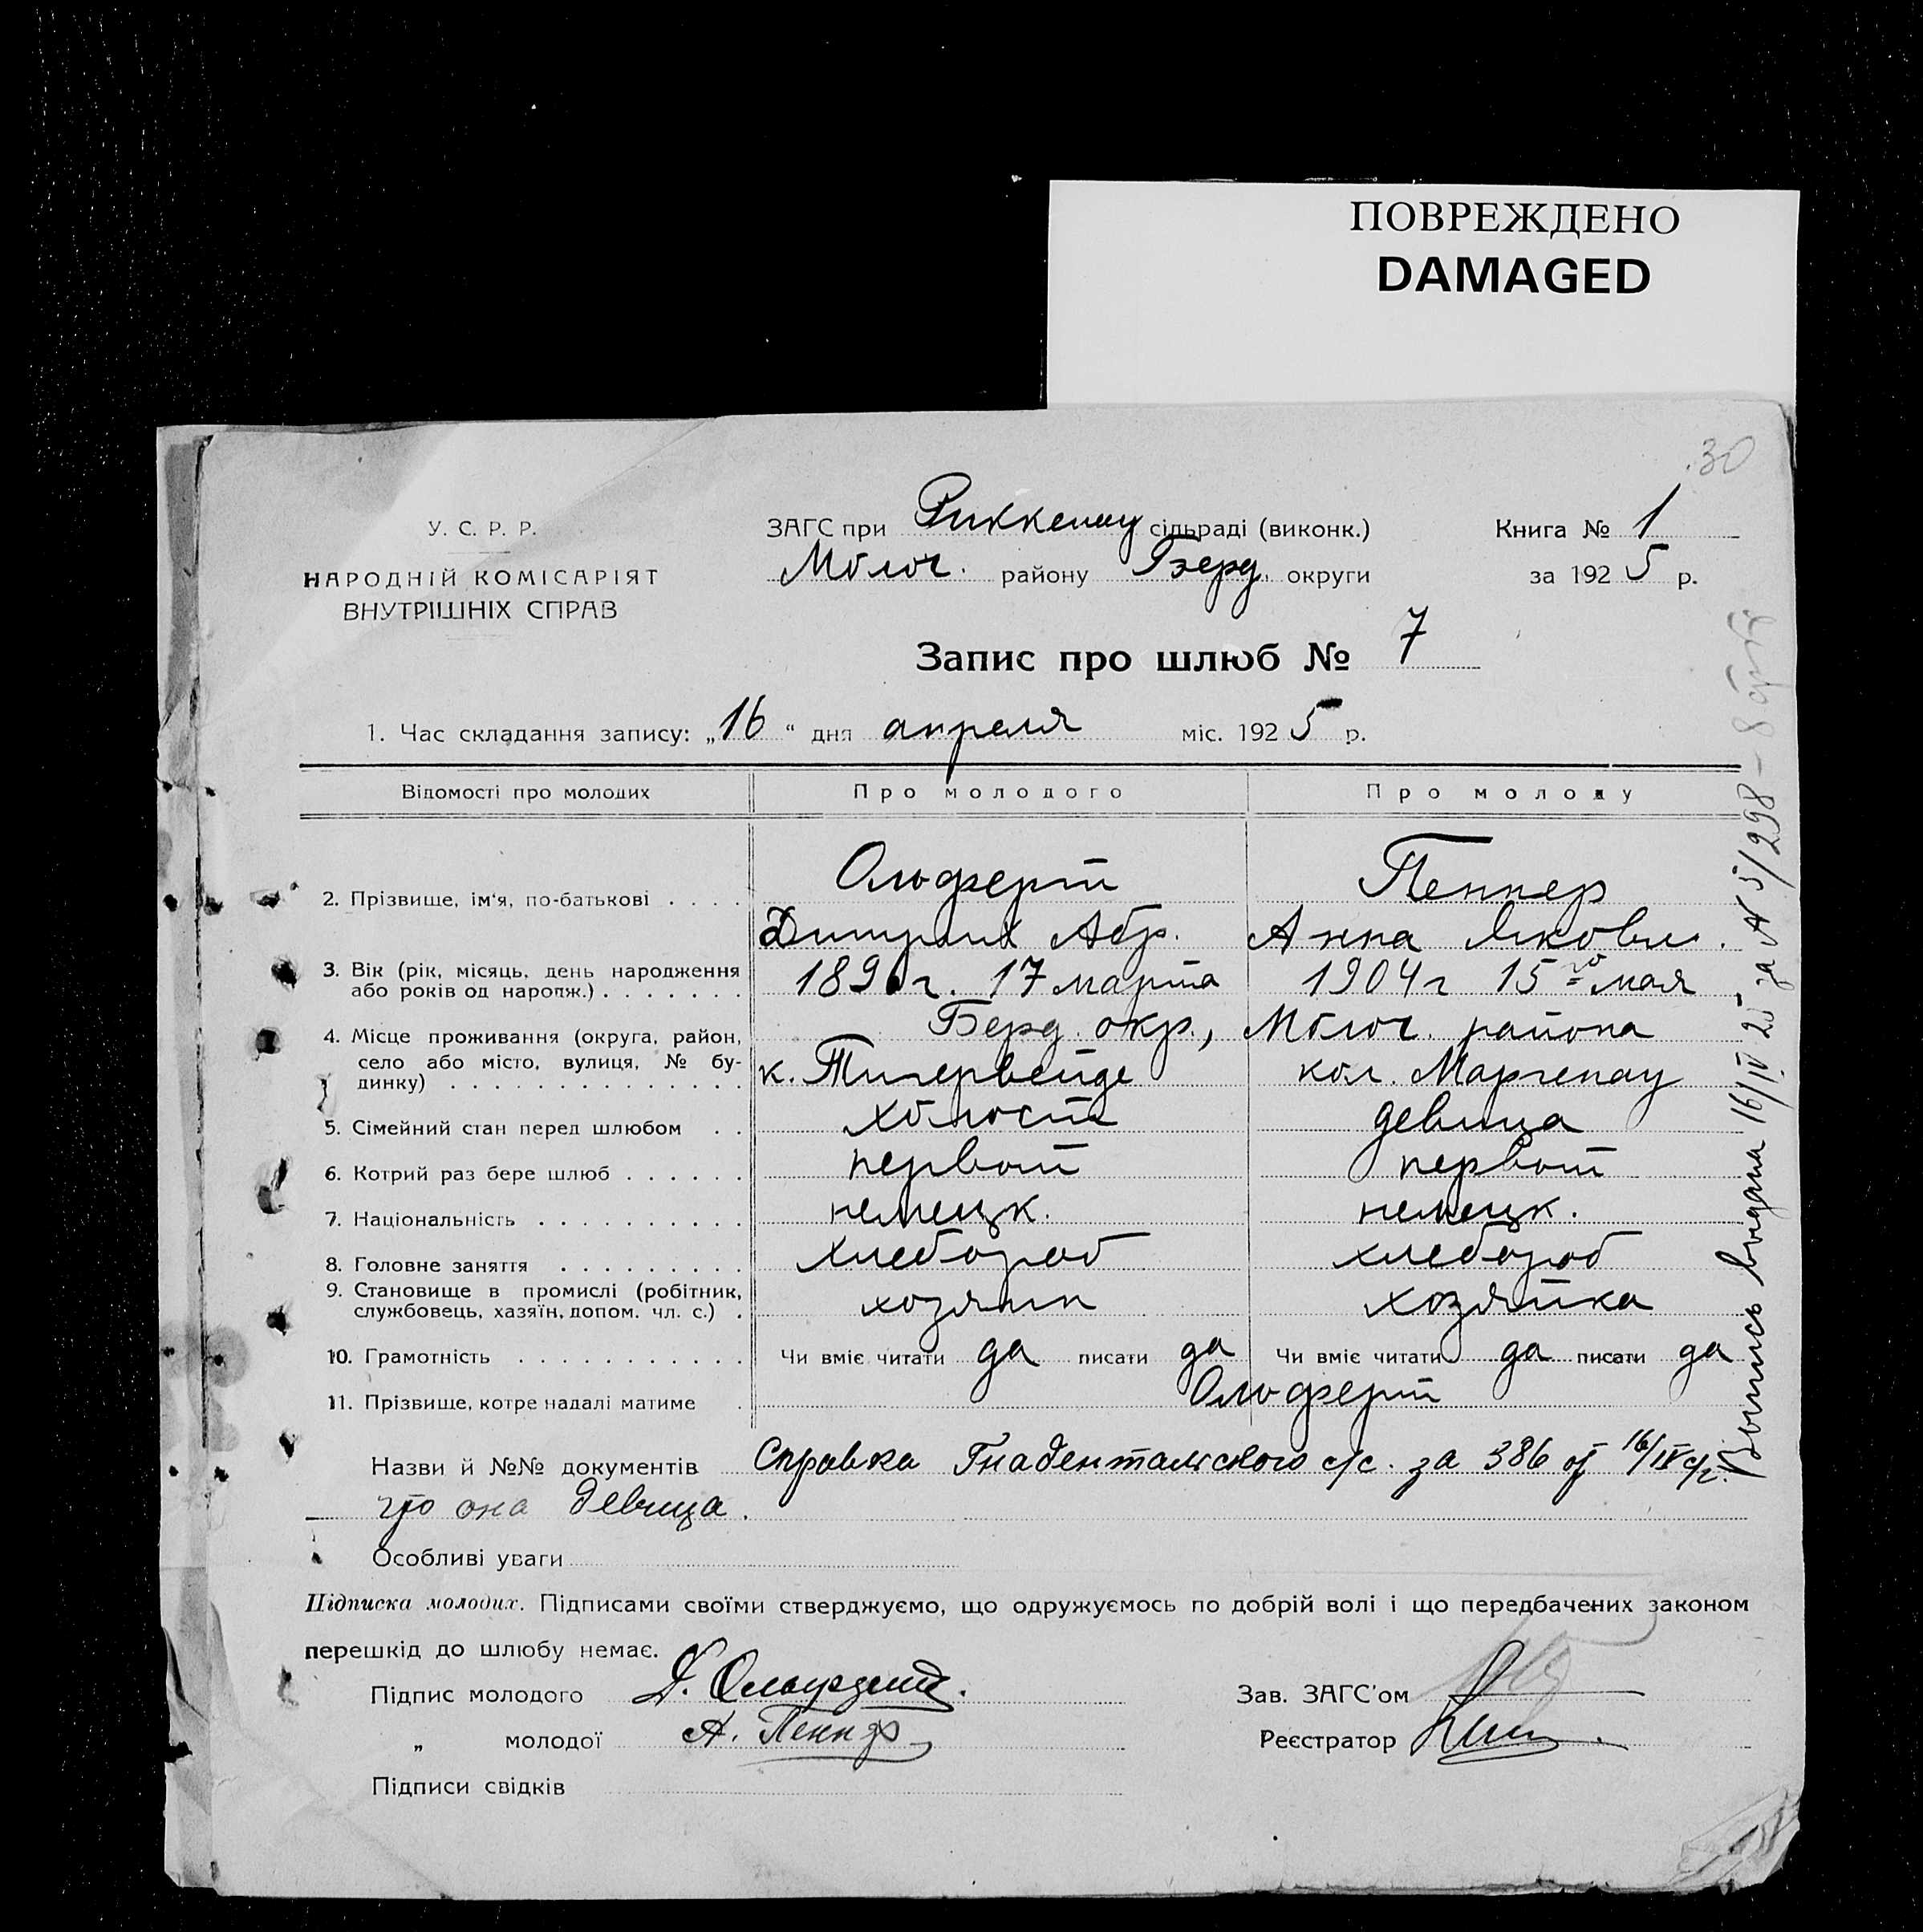 ПОВРЕЖДЕНО
DAMAGED
30
У. С. Р. Р.
НАРОДНІЙ КОМІСАРІЯТ
ВНУТРІШНІХ СПРАВ
ЗАГС при Риккенау сільраді (виконк.)
Молоч. району Берд. округи
Книга № 1
за 1925 р.
Запис про шлюб № 7
1. Час складання запису: „16“ дня апреля міс. 1925 р.
Відомості про молодих Про молодого Про молоду
2. Прізвище, ім'я, по-батькові . . . . Ольферт Пеннер
Дитрих Абр. Анна Яковл.
3. Вік (рік, місяць, день народження 189 г. 17 марта 1904 г 15го мая
або років од народж.) . . . . . . .
4. Місце проживання (округа, район, Берд. окр., Молоч. района
село або місто, вулиця, № бу- к. Тигервейде кол. Маргенау
динку) . . . . . . . . . . . . . .
5. Сімейний стан перед шлюбом . . холост девица
6. Котрий раз бере шлюб . . . . . . первый первый
7. Національність . . . . . . . . . . немецк. немецк.
8. Головне заняття . . . . . . . . . хлебороб хлебороб
9. Становище в промислі (робітник, хозяин хозяйка
службовець, хазяїн, допом. чл. с.) .
10. Грамотність . . . . . . . . . . . Чи вміє читати да писати да Чи вміє читати да писати да
11. Прізвище, котре надалі матиме . Ольферт
Назви й №№ документів Справка Гнадентальского с/с. за 386 от 16/IV с/г.
что она девица.
Особливі уваги
Підписка молодих. Підписами своїми стверджуємо, що одружуємось по добрій волі і що передбачених законом
перешкід до шлюбу немає.
Підпис молодого Д. Ольферт.
„ молодої А. Пеннер
Підписи свідків
Зав. ЗАГС'ом
Реєстратор
Выпись выдана 16/IV 25 за № 5/298 –